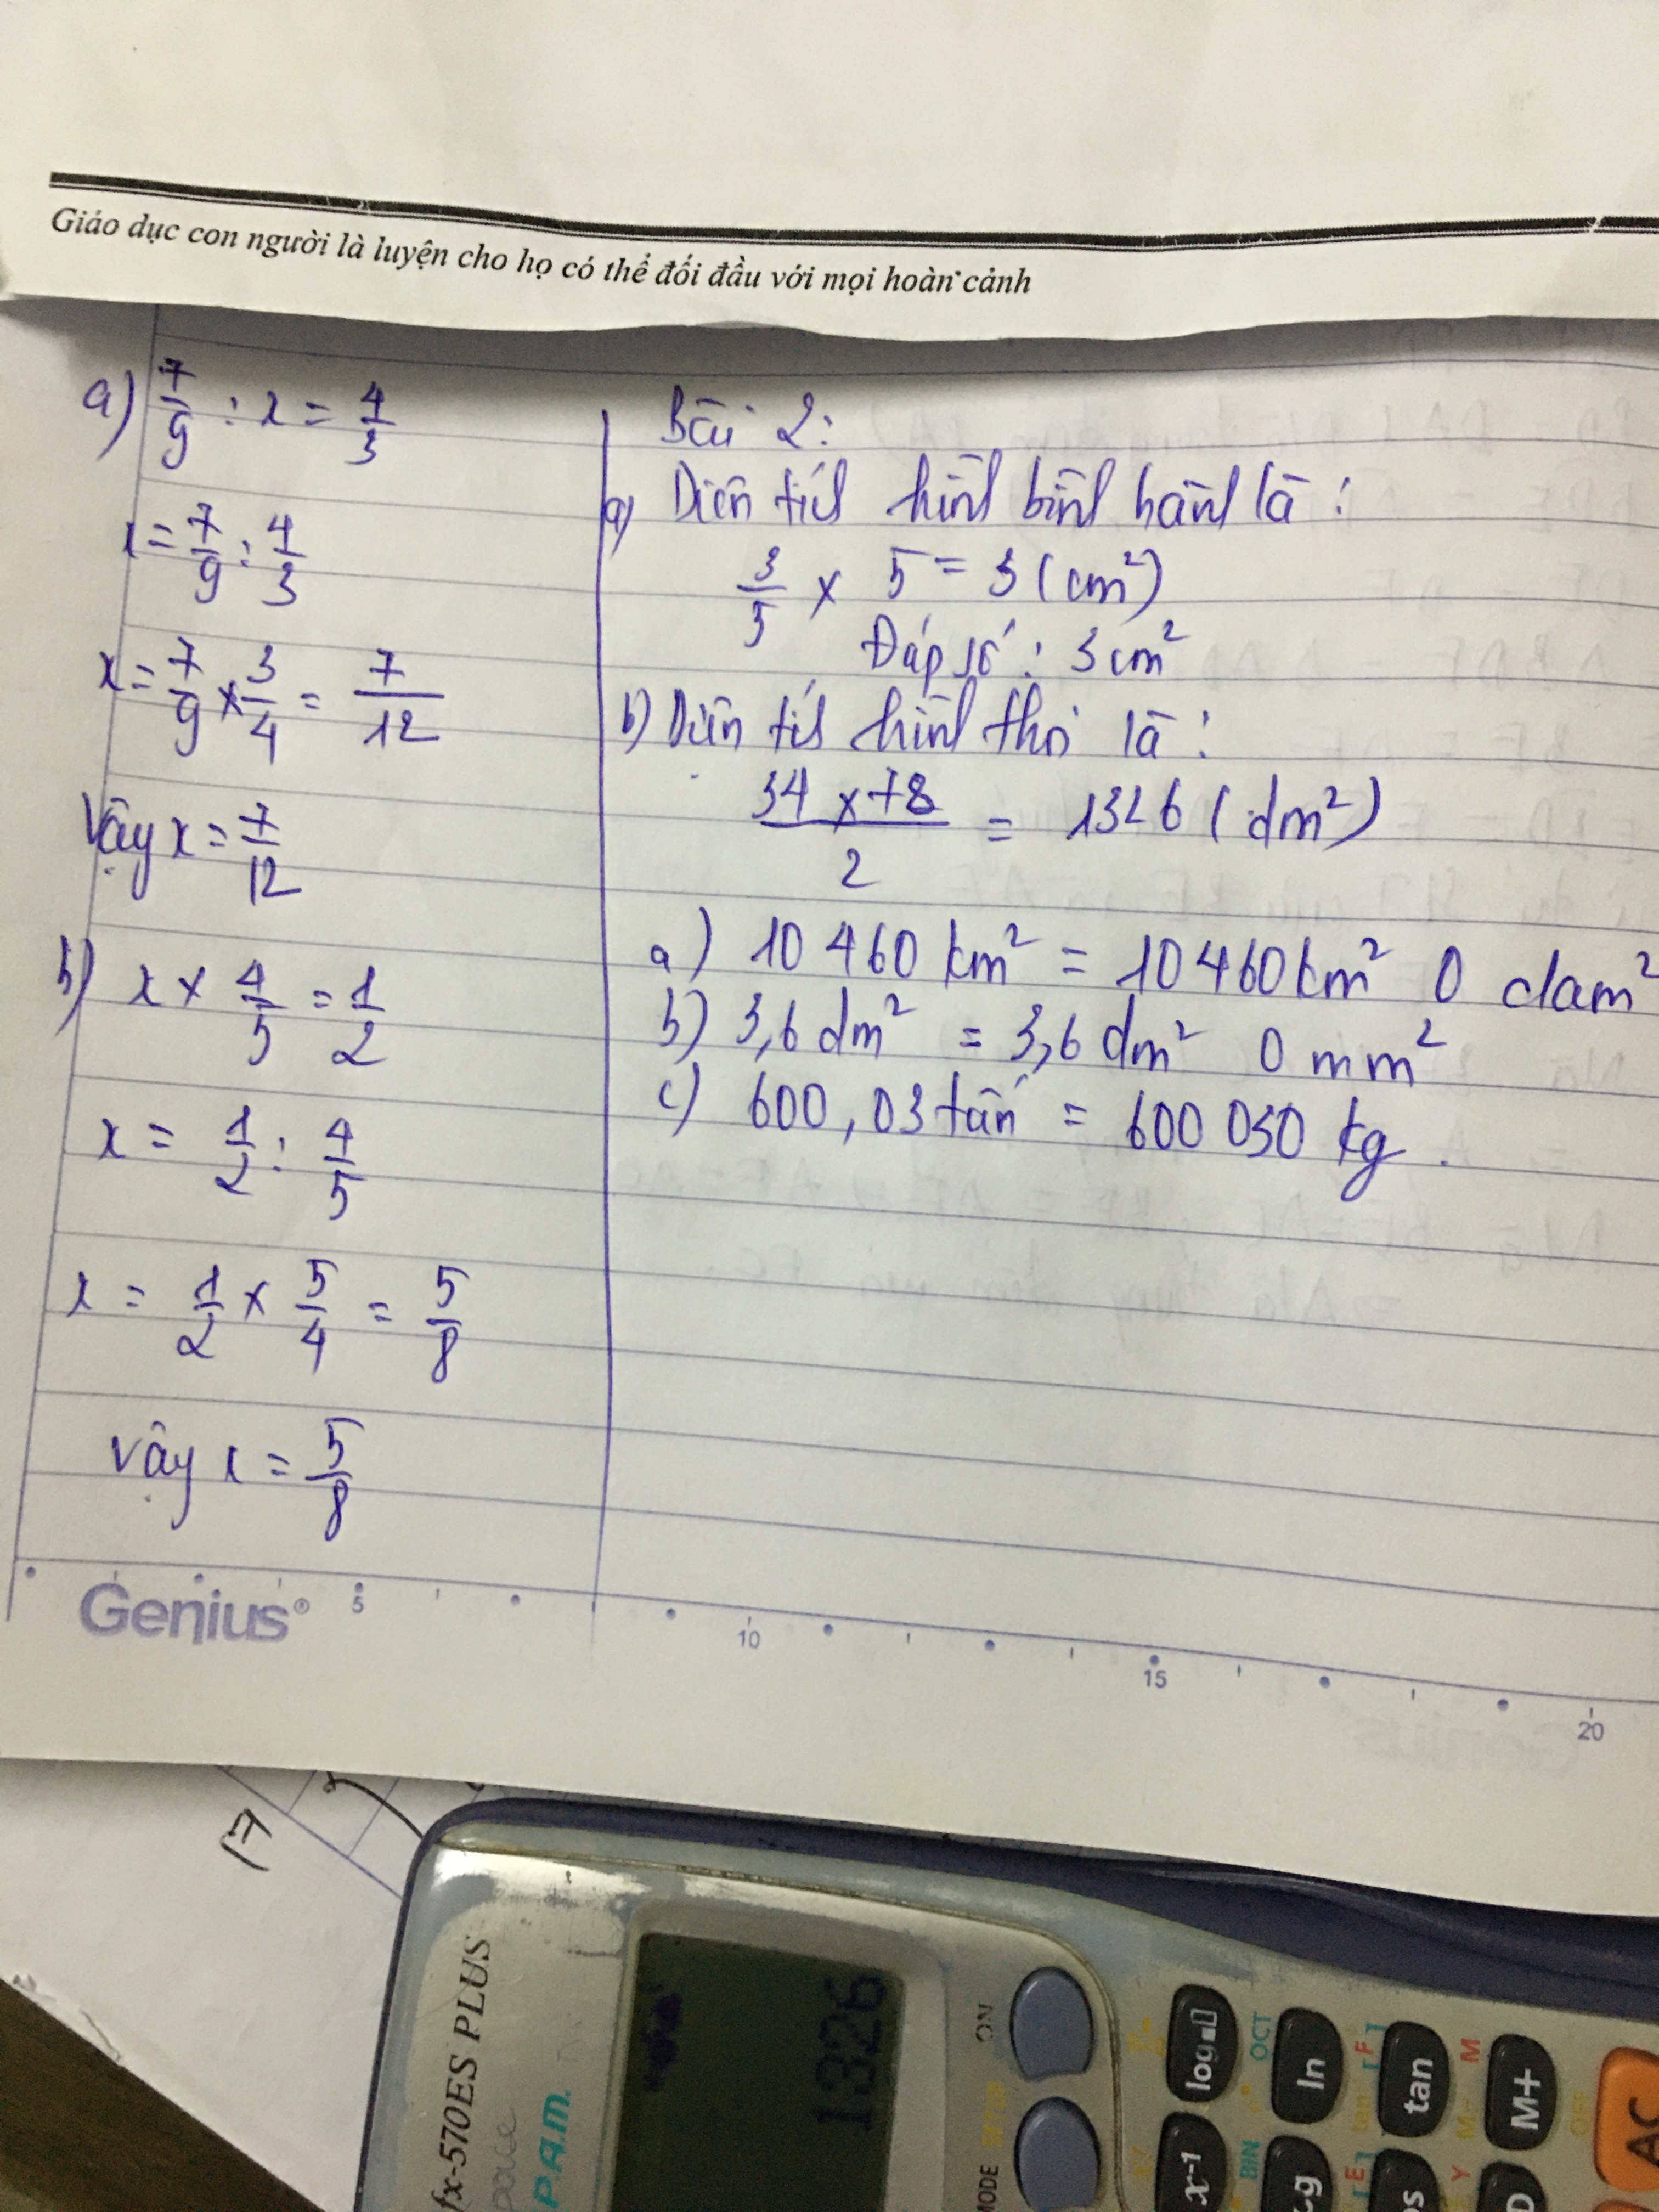 Giáo dục con người là luyện cho họ có thể đối đầu với mọi hoàn cảnh
a) 7/9 : x = 4/3
x = 7/9 : 4/3
x = 7/9 × 3/4 = 7/12
Vậy x = 7/12
b) x × 4/5 = 1/2
x = 1/2 : 4/5
x = 1/2 × 5/4 = 5/8
Vậy x = 5/8
Bài 2:
a) Diện tích hình bình hành là :
3/5 × 5 = 3 (cm²)
Đáp số : 3 cm²
b) Diện tích hình thoi là :
34 × 78 / 2 = 1326 (dm²)
a) 10 460 km² = 10 460 km² 0 dam²
b) 3,6 dm² = 3,6 dm² 0 mm²
c) 600,03 tấn = 600 030 kg.
Genius®
5
10
15
20
17
fx-570ES PLUS
P.A.M.
1326
ON
MODE
log
OCT
ln
tan
M
M+
AC
x-1
BIN